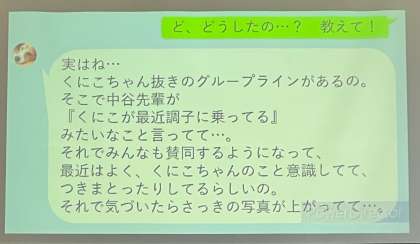 ど、どうしたの…？ 教えて！
実はね…
くにこちゃん抜きのグループラインがあるの。
そこで中谷先輩が
『くにこが最近調子に乗ってる』
みたいなこと言ってて…。
それでみんなも賛同するようになって、
最近はよく、くにこちゃんのこと意識してて、
つきまとったりしてるらしいの。
それで気づいたらさっきの写真が上がってて…。